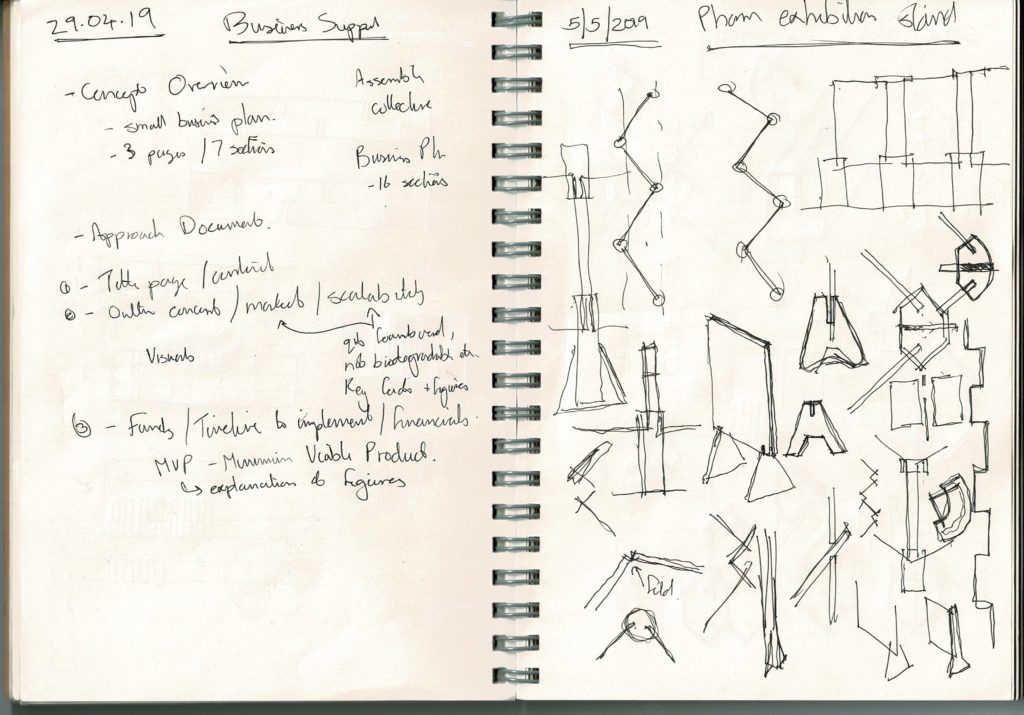 29.04.19
Business Support
- Concept Overview
- small business plan.
- 3 pages / 7 sections
Assemble
collective
Business Pln
- 16 sections
- Approach Document.
① - Title page / content
② - Outline concept / market / scalability
Visuals
foamboard,
not biodegradable etc
Key facts + figures
③ - Funds / Timeline to implement / financials.
MVP - Minimum Viable Product.
↳ explanation of figures
5/5/2019
exhibition stand
fold.